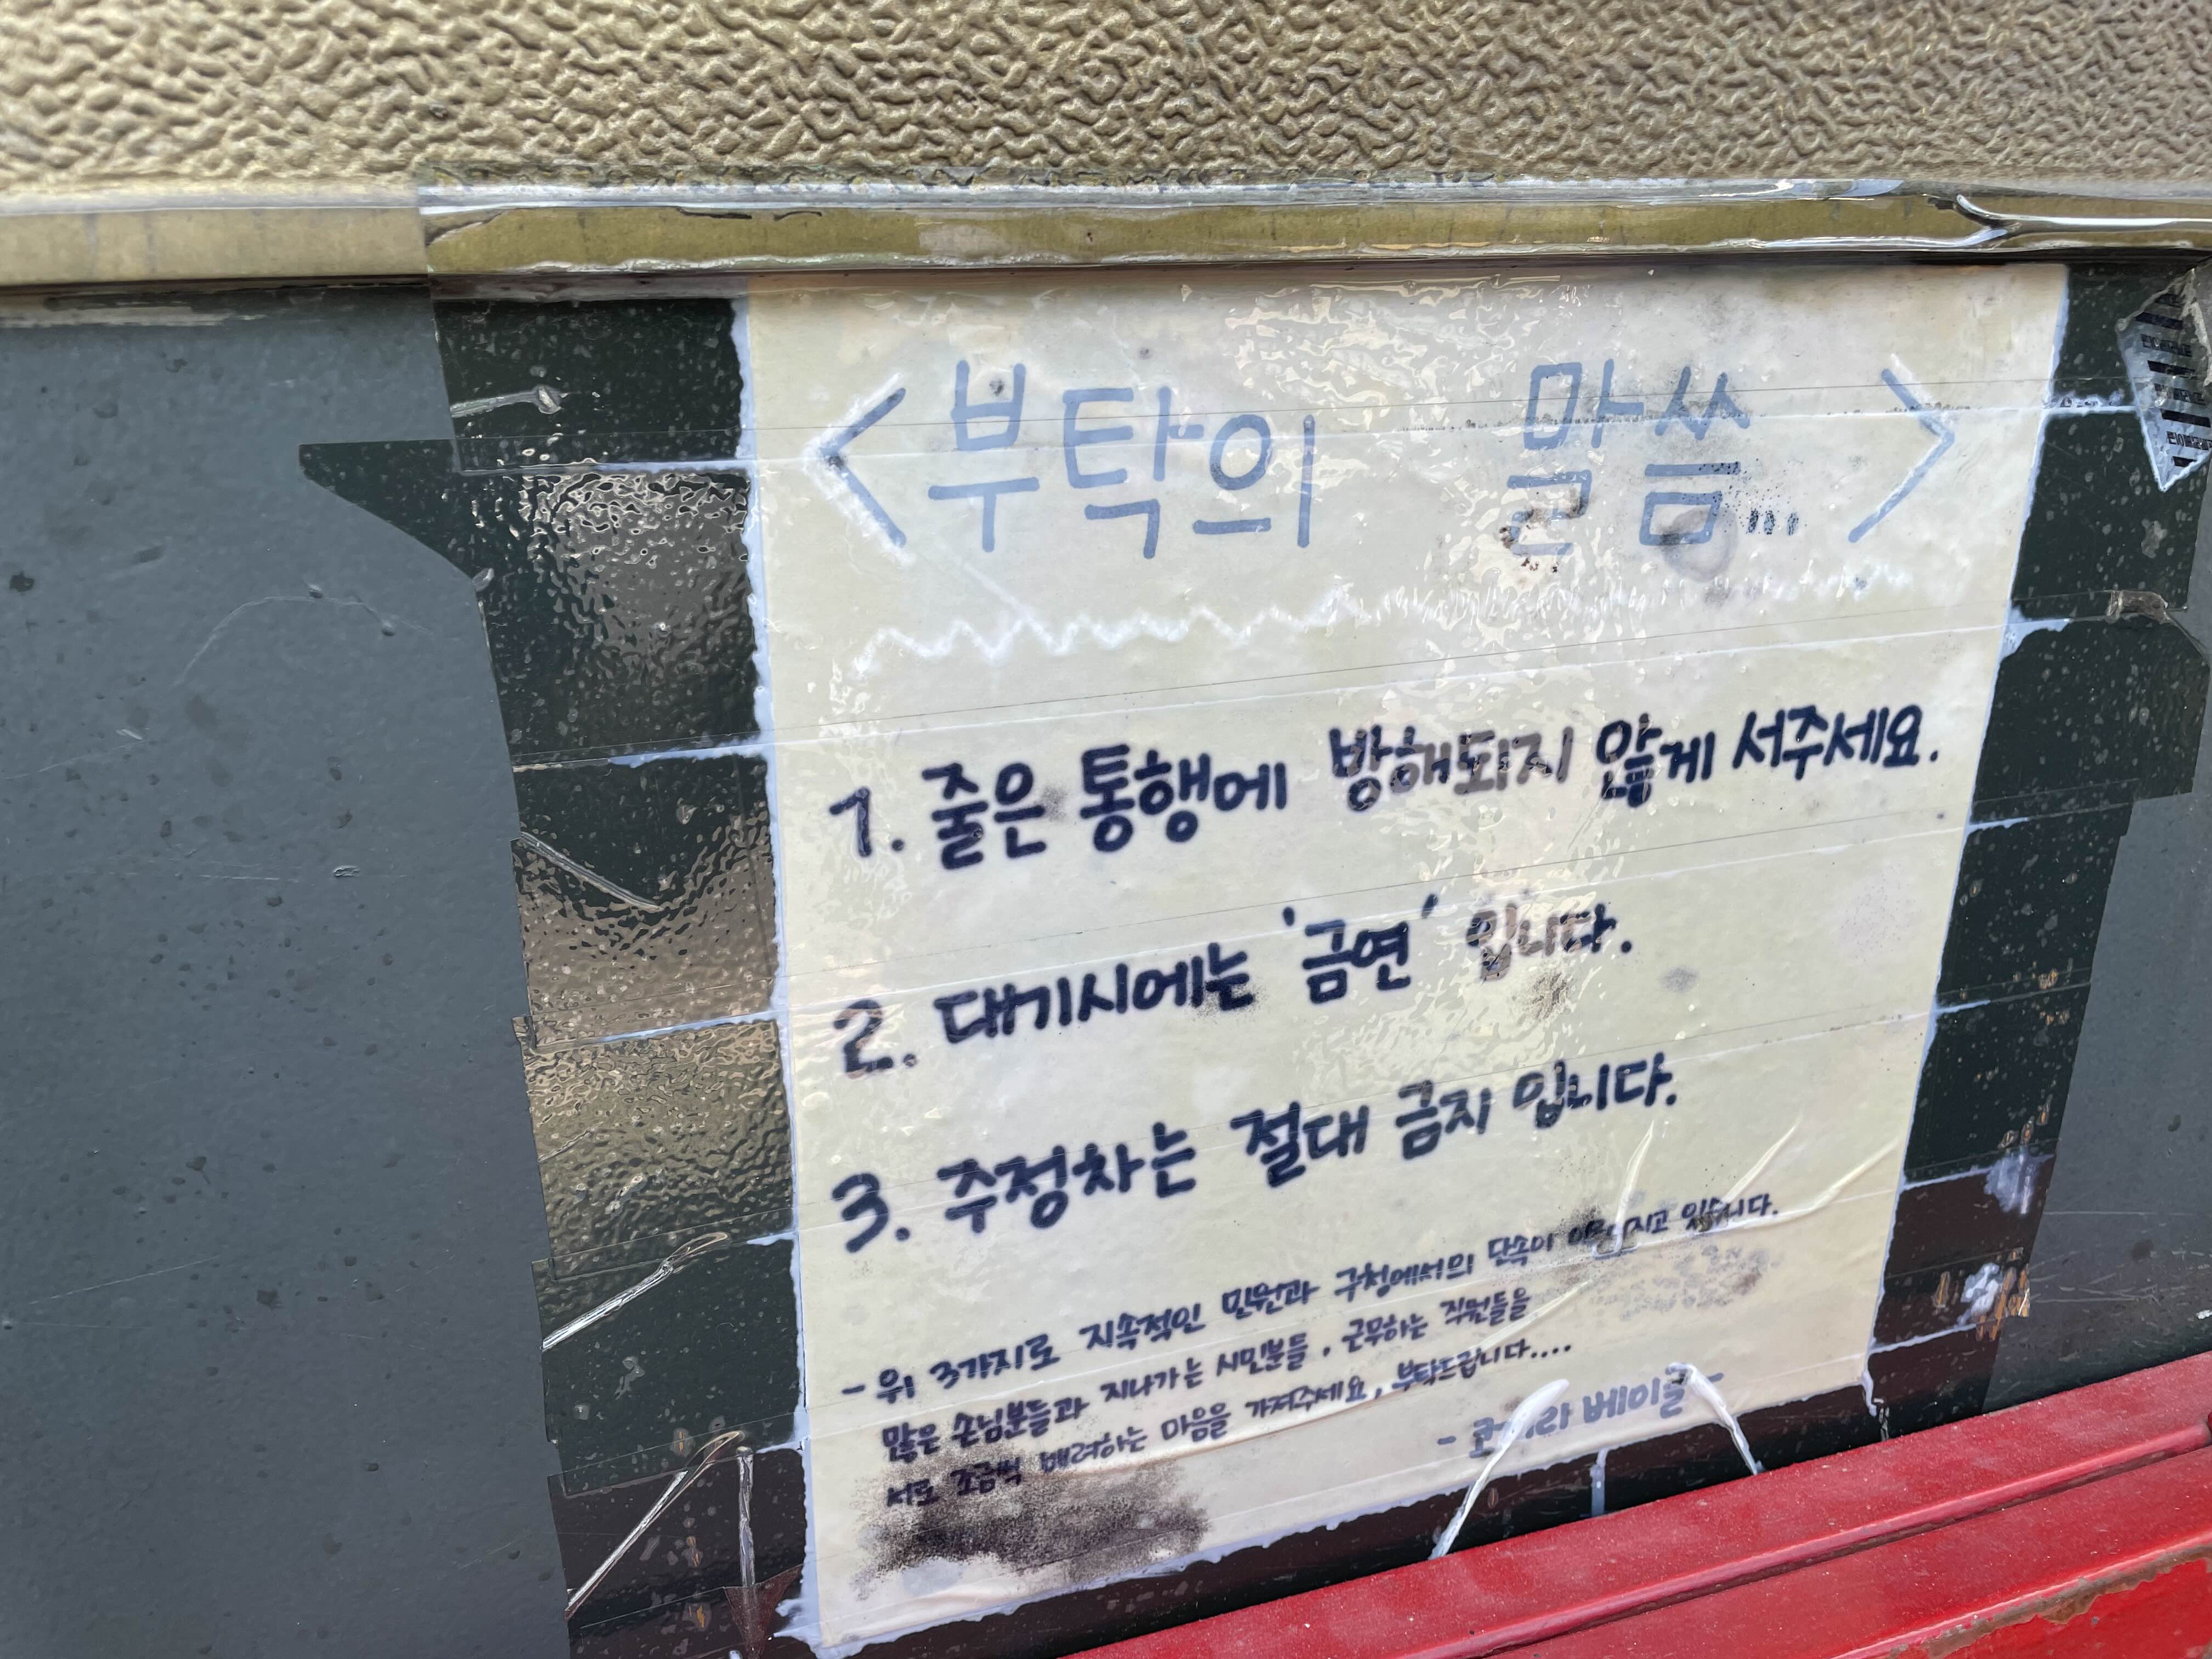 <부탁의 말씀...>
1. 줄은 통행에 방해되지 않게 서주세요.
2. 대기시에는 '금연' 입니다.
3. 주정차는 절대 금지 입니다.
- 위 3가지로 지속적인 민원과 구청에서의 단속이 있습니다.
많은 손님분들과 지나가는 시민분들, 근무하는 직원들을
서로 조금씩 배려하는 마음을 가져주세요, 부탁드립니다....
베이글 -